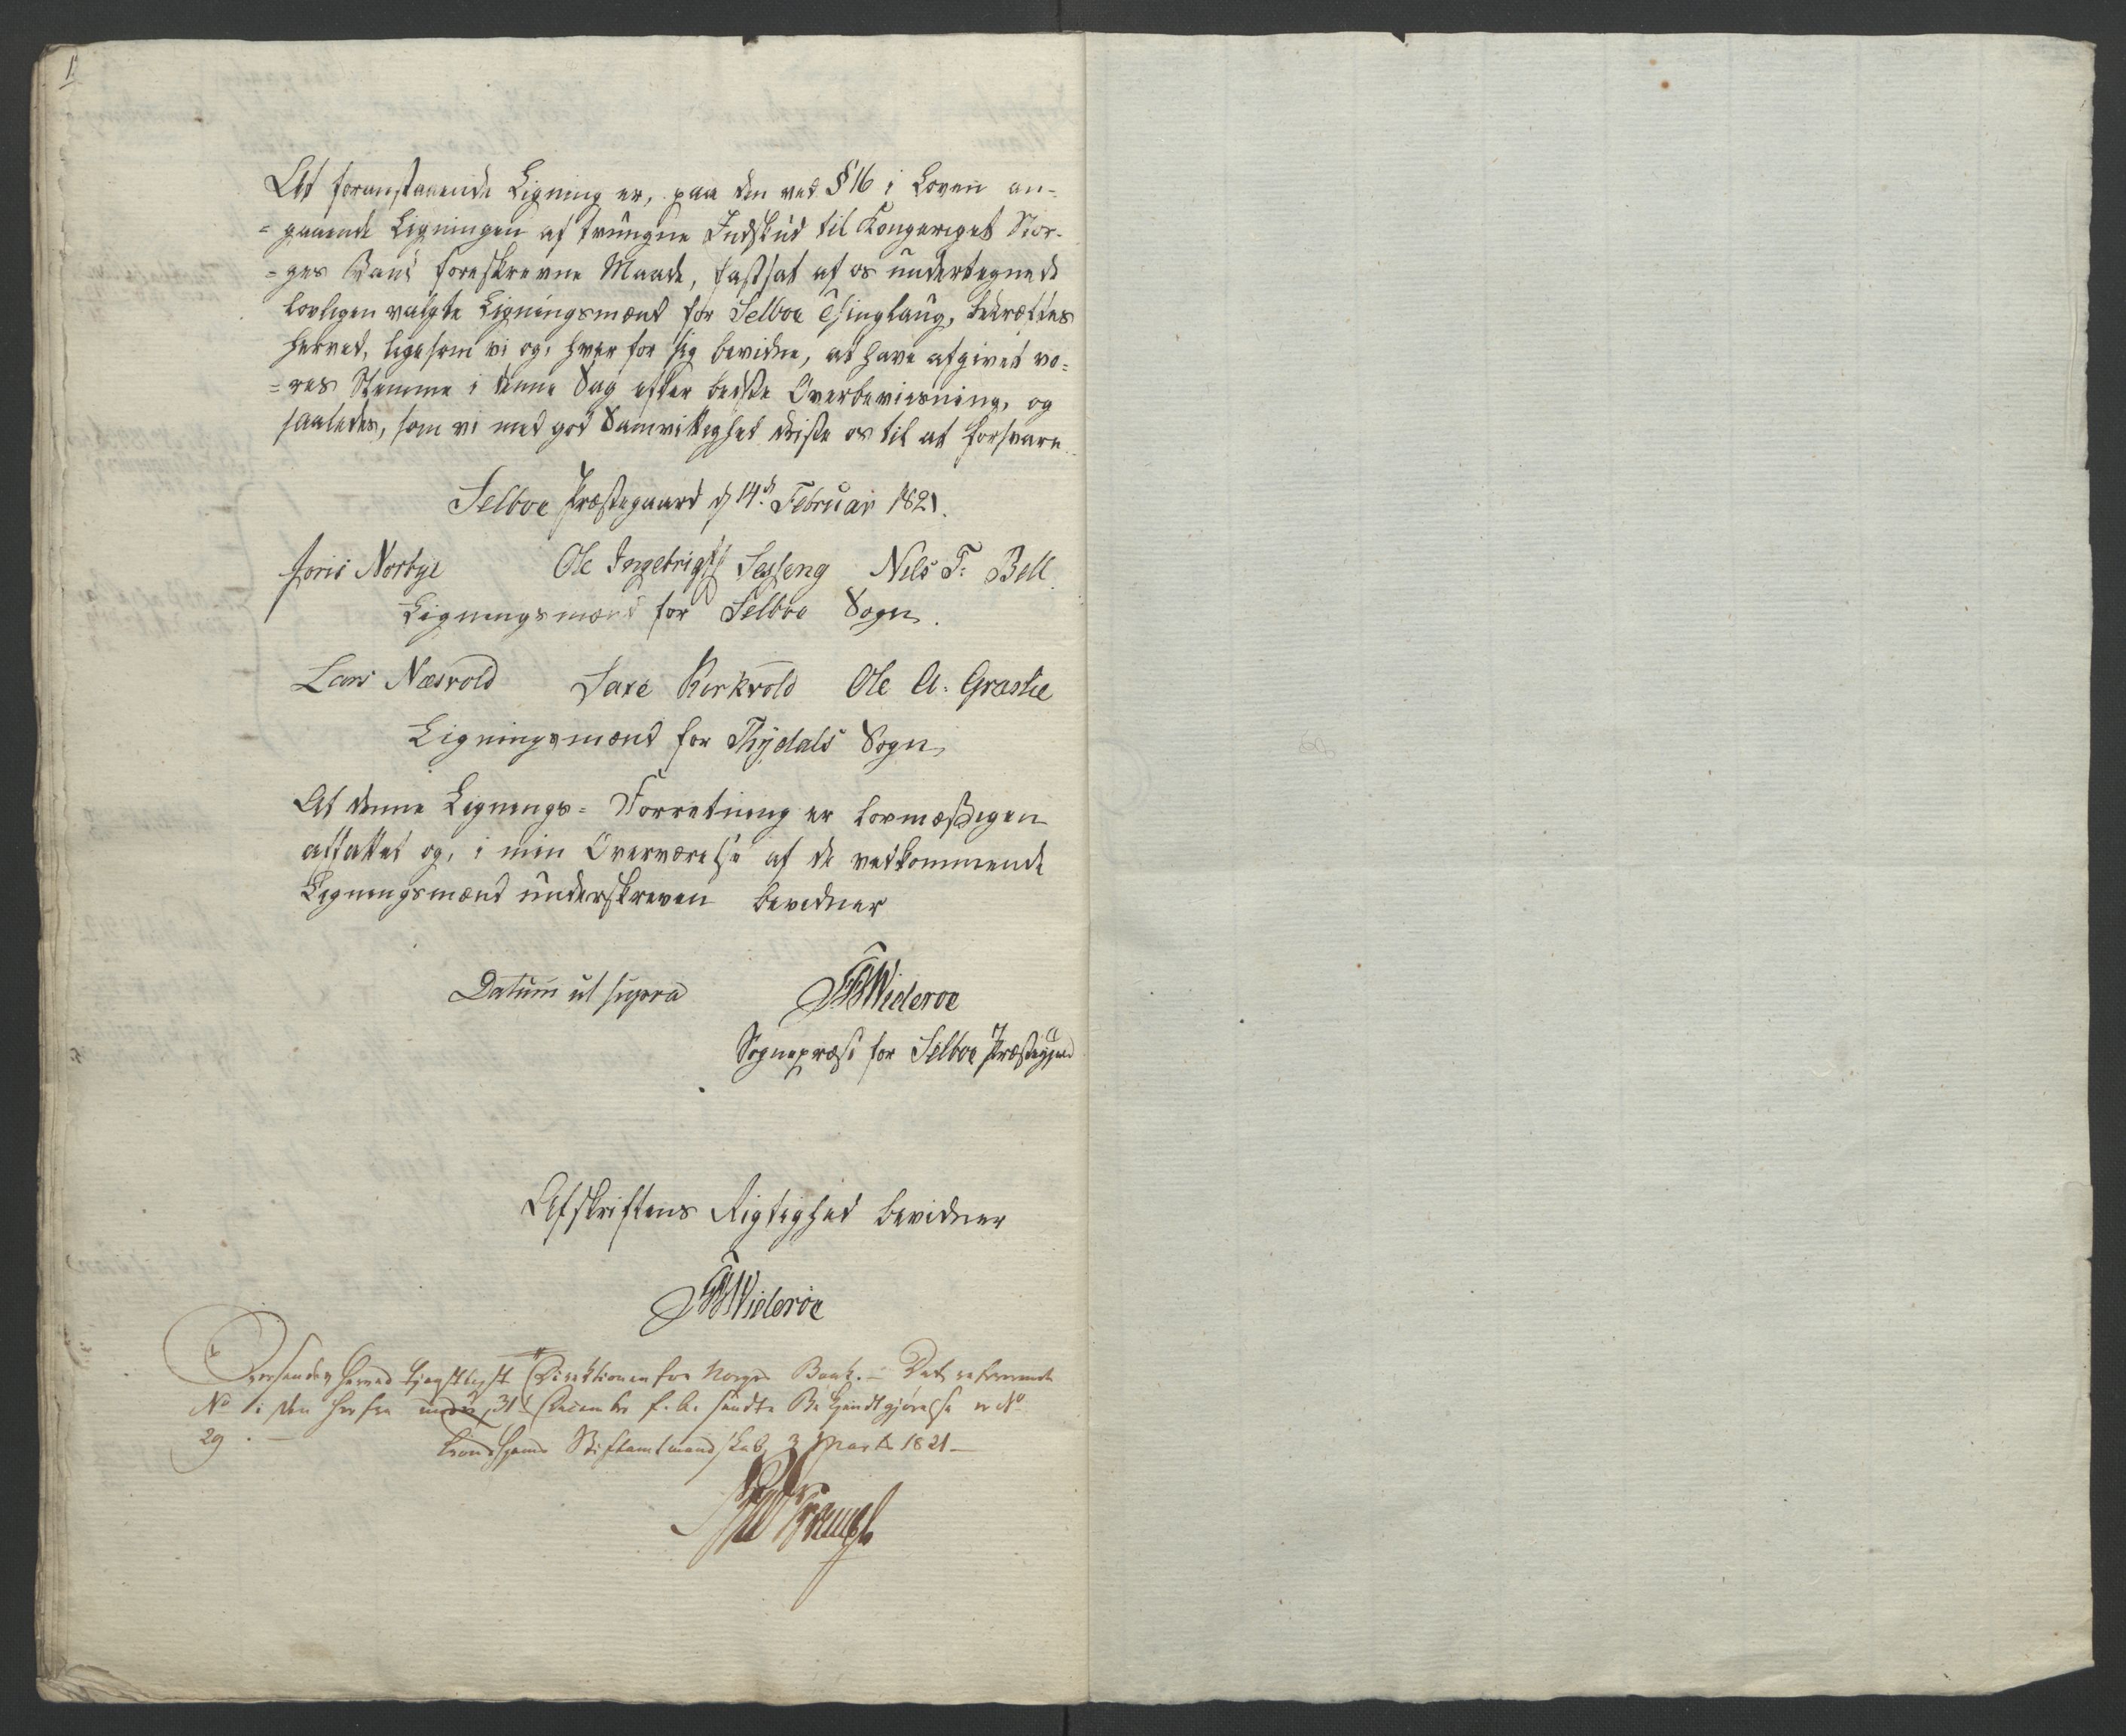 At foranstaaende Ligning er, paa den ved § 16 i Loven an-
=gaaende Ligningen af tvungne Indskud til Kongeriget Nor-
=ges Bank foreskrevne Maade, fastsat af os undertegnede
lovligen valgte Ligningsmænd for Selboe Thinglaug, bekræftes
herved, ligesom vi og, hver for sig bevidne, at have afgivet vo=
=res Stemme i denne Sag efter bedste Overbeviisning, og
saaledes, som vi med god Samvittighed driste os til at forsvare.
Selboe Præstegaard d 14d Februar 1821.
Joris Norbye Ole Ingebrigts Sesseng Nils T. Bell
Ligningsmænd for Selboe Sogn.
Lars Næsvold Kirkvold Ole A. Græslie
Ligningsmænd for Thydals Sogn,
At denne Lignings= Forretning er lovmæssigen
affattet og, i min Overværelse af de vedkommende
Ligningsmænd underskreven bevidner
Datum ut supra Wideroe
Sognepræst for Selboe Præstegjeld
Afskriftens Rigtighed bevidner
Wideroe
Oversendes herved tjenstligst Direktionen for Norges Bank. – Det refererende
No i den herfra under 31 December f. A. sendte Bekjendtgjørelse er No
29. –
Trondhjems Stiftamtmandskab 3 Marts 1821 –